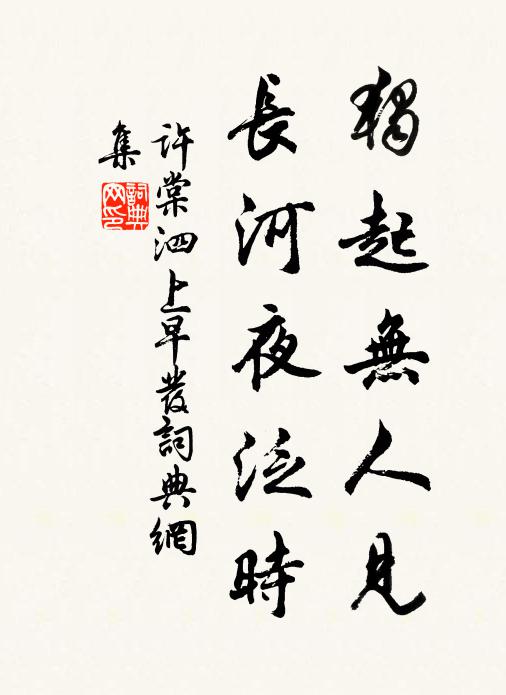 獨起無人見
長河夜泛時
許棠泗上早發詞典網
集
詞典網印